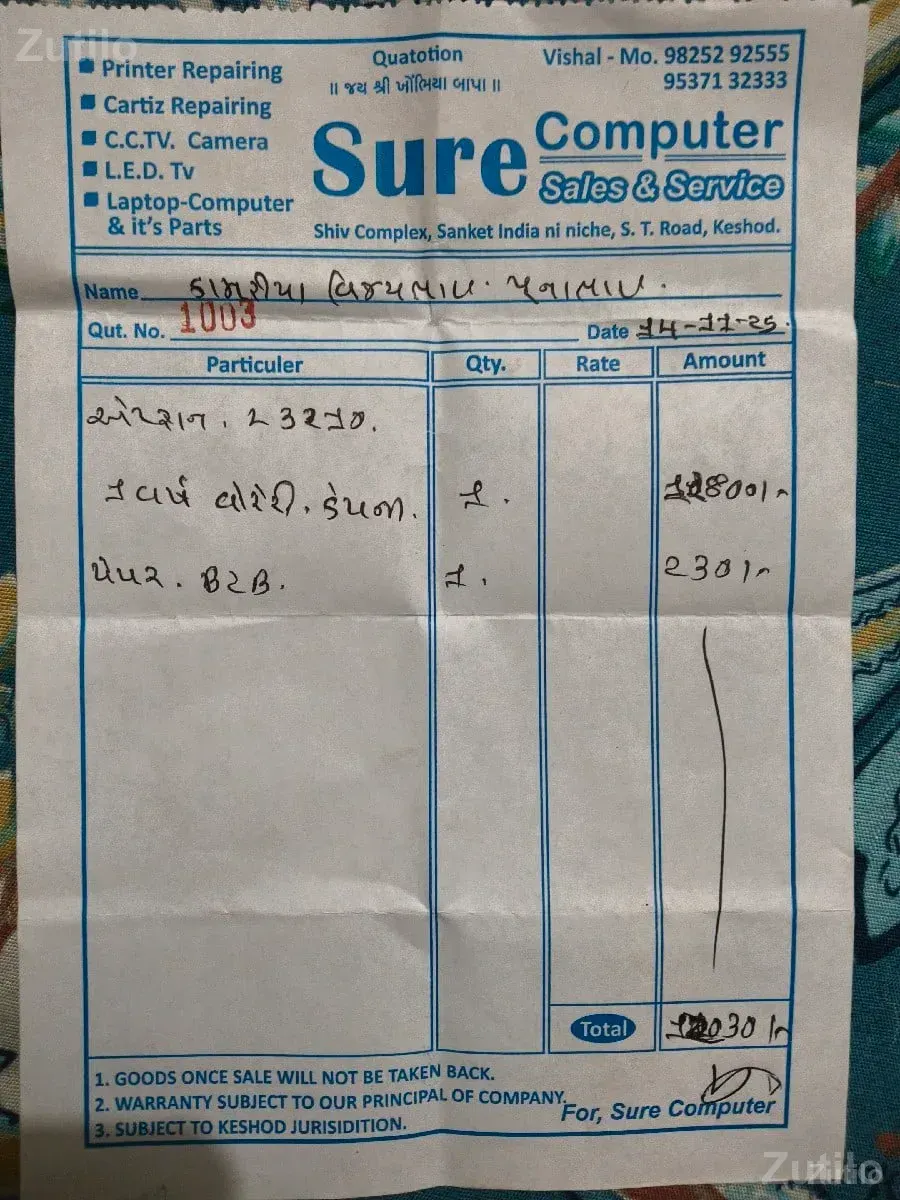 Zutilo
Printer Repairing
Cartiz Repairing
C.C.TV. Camera
L.E.D. Tv
Laptop-Computer
& it's Parts
Quatotion
॥ જય શ્રી ખોંભિયા બાપા ॥
Vishal - Mo. 98252 92555
95371 32333
Sure Computer
Sales & Service
Shiv Complex, Sanket India ni niche, S. T. Road, Keshod.
Name
Qut. No. 1003
Date ૧૪-૧૧-૨૫.
Particuler Qty. Rate Amount
૧ વર્ષ વોરંટી. કંપની. ૧.
પેપર. ૧. ૨૩૦/-
Total
1. GOODS ONCE SALE WILL NOT BE TAKEN BACK.
2. WARRANTY SUBJECT TO OUR PRINCIPAL OF COMPANY.
3. SUBJECT TO KESHOD JURISIDITION.
For, Sure Computer
Zutilo